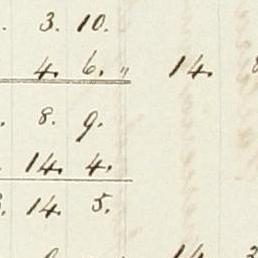 . 3. 10.
4. 6. " 14.
. 8. 9.
. 14. 4.
. 14. 5.
14